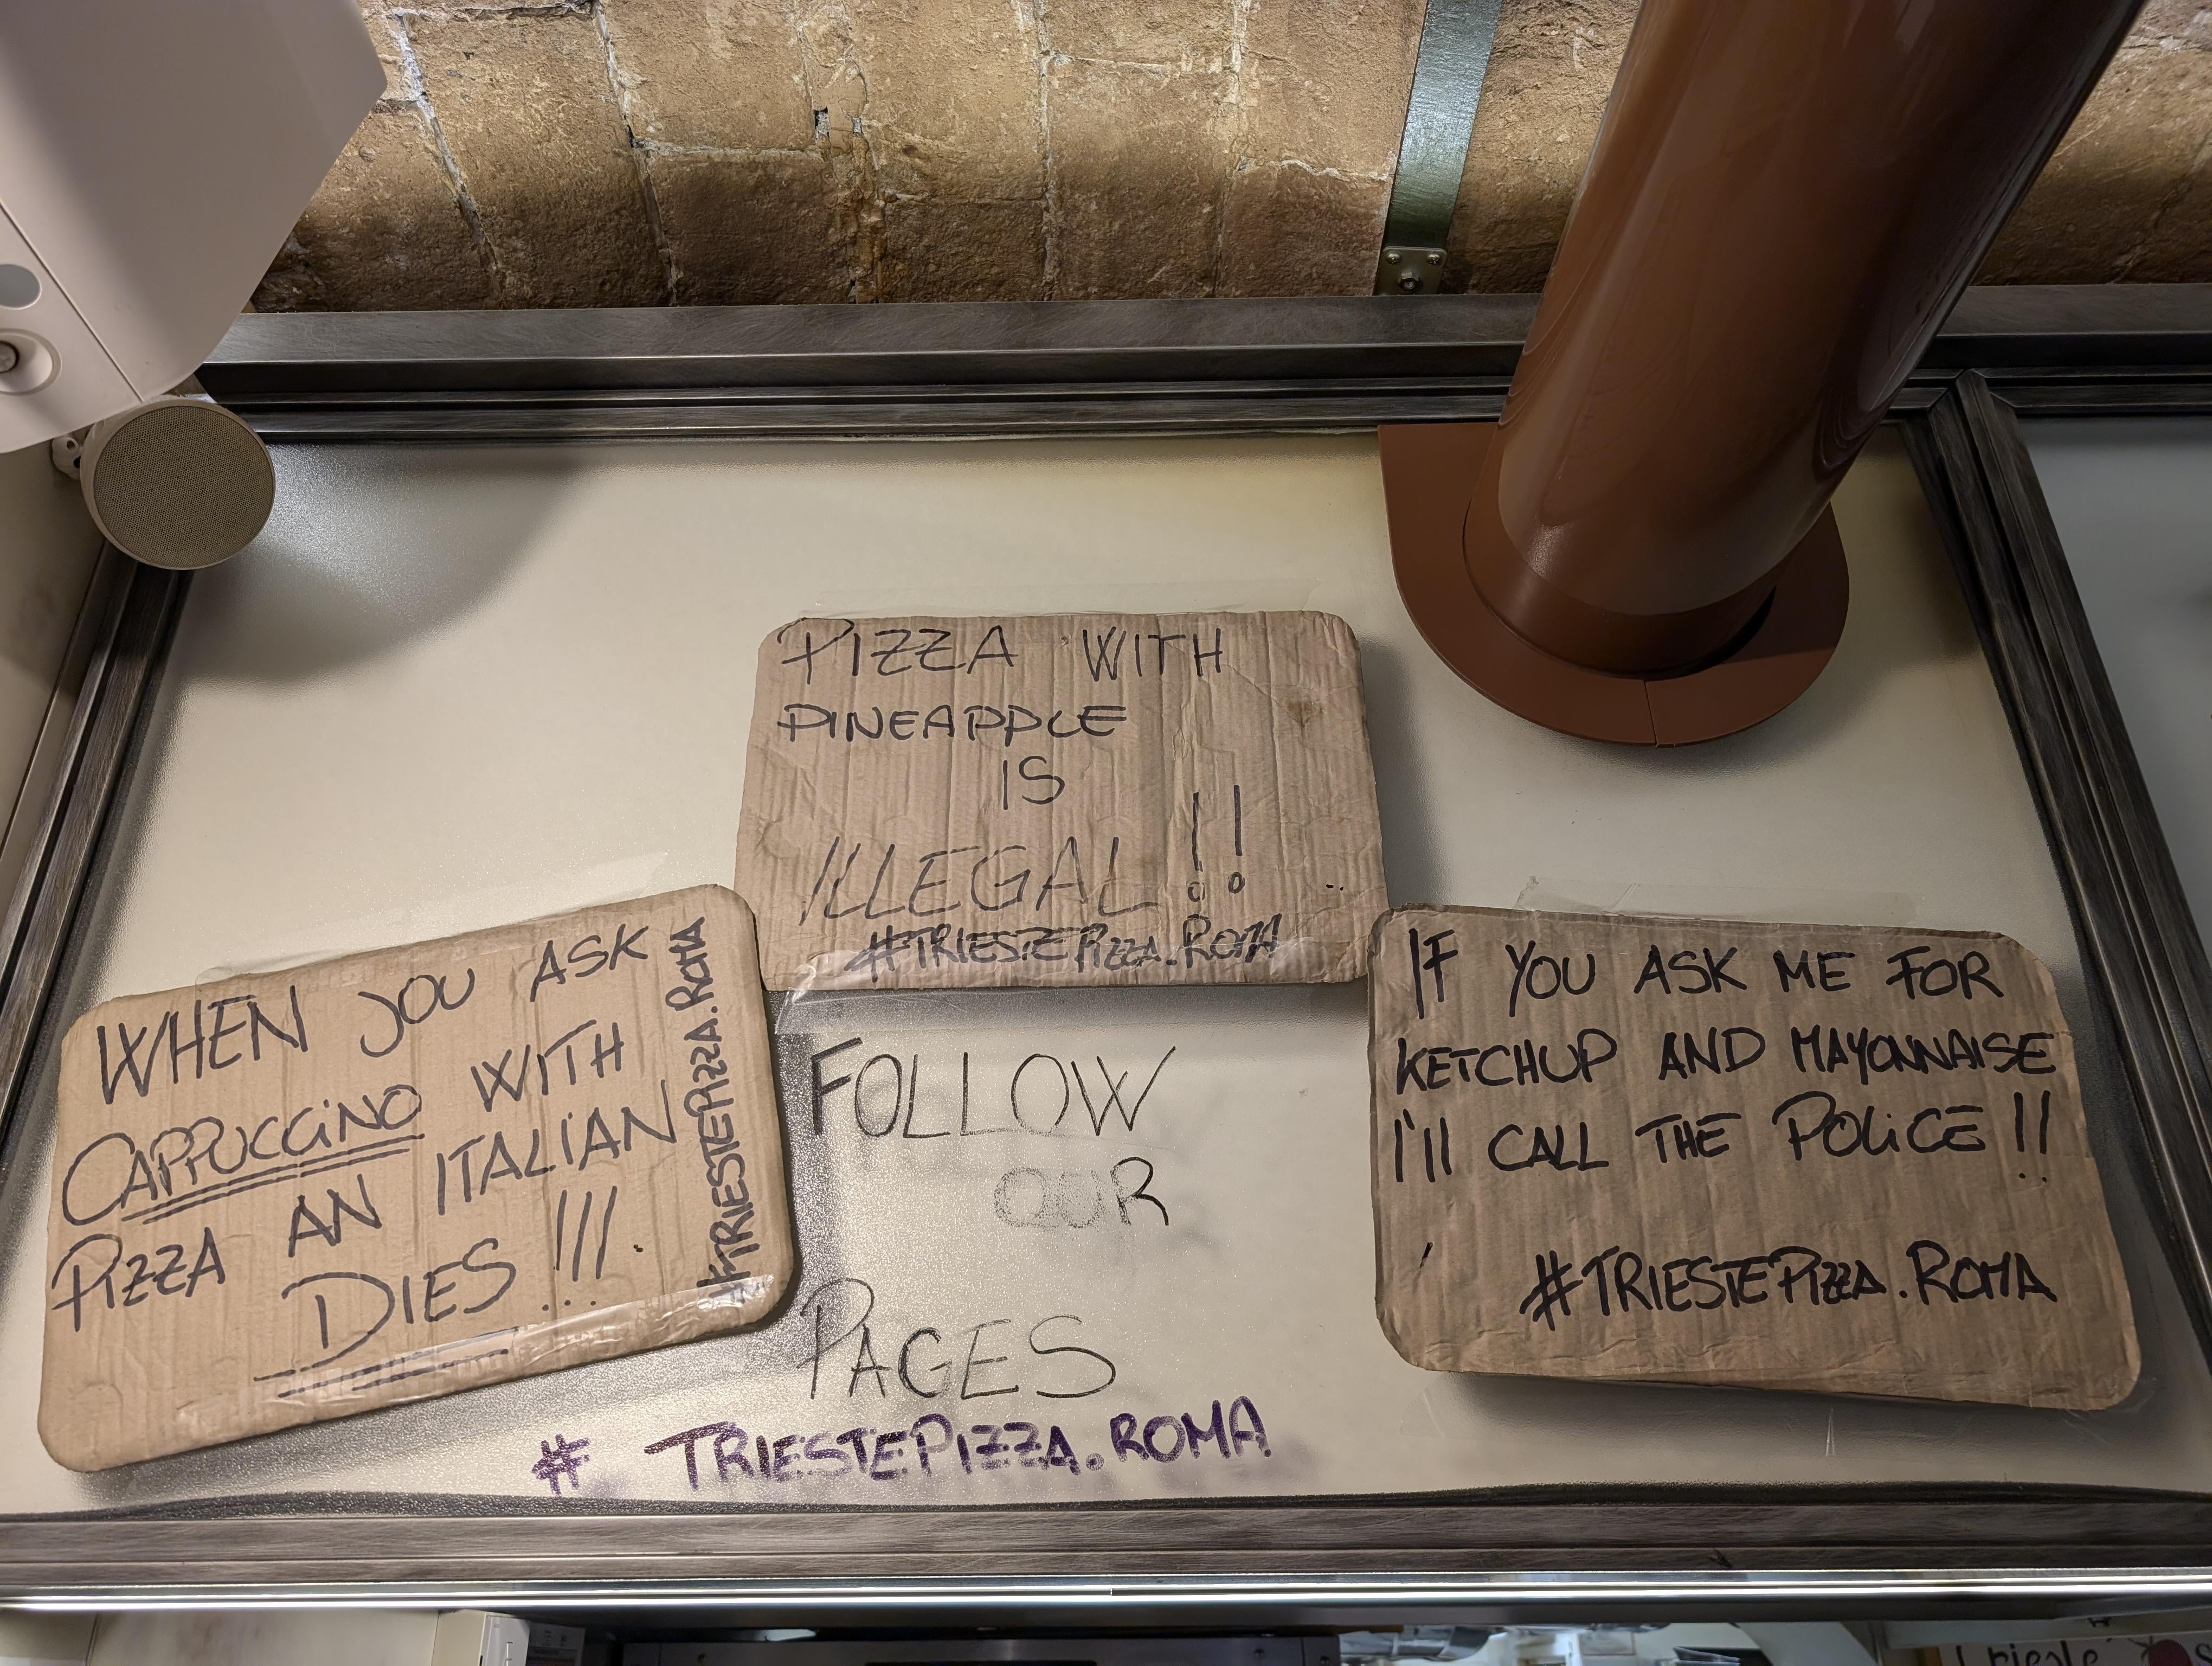 PIZZA WITH
PINEAPPLE
IS
ILLEGAL!!
#TRIESTEPIZZA.ROMA
WHEN YOU ASK
CAPPUCCiNO WITH
PIZZA AN ITALIAN
DIES!!!
#TRIESTEPIZZA.ROMA
IF YOU ASK ME FOR
KETCHUP AND MAYONNAISE
I'll CALL THE POLiCE!!
#TRIESTEPIZZA.ROMA
FOLLOW
OUR
PAGES
# TRIESTEPIZZA.ROMA